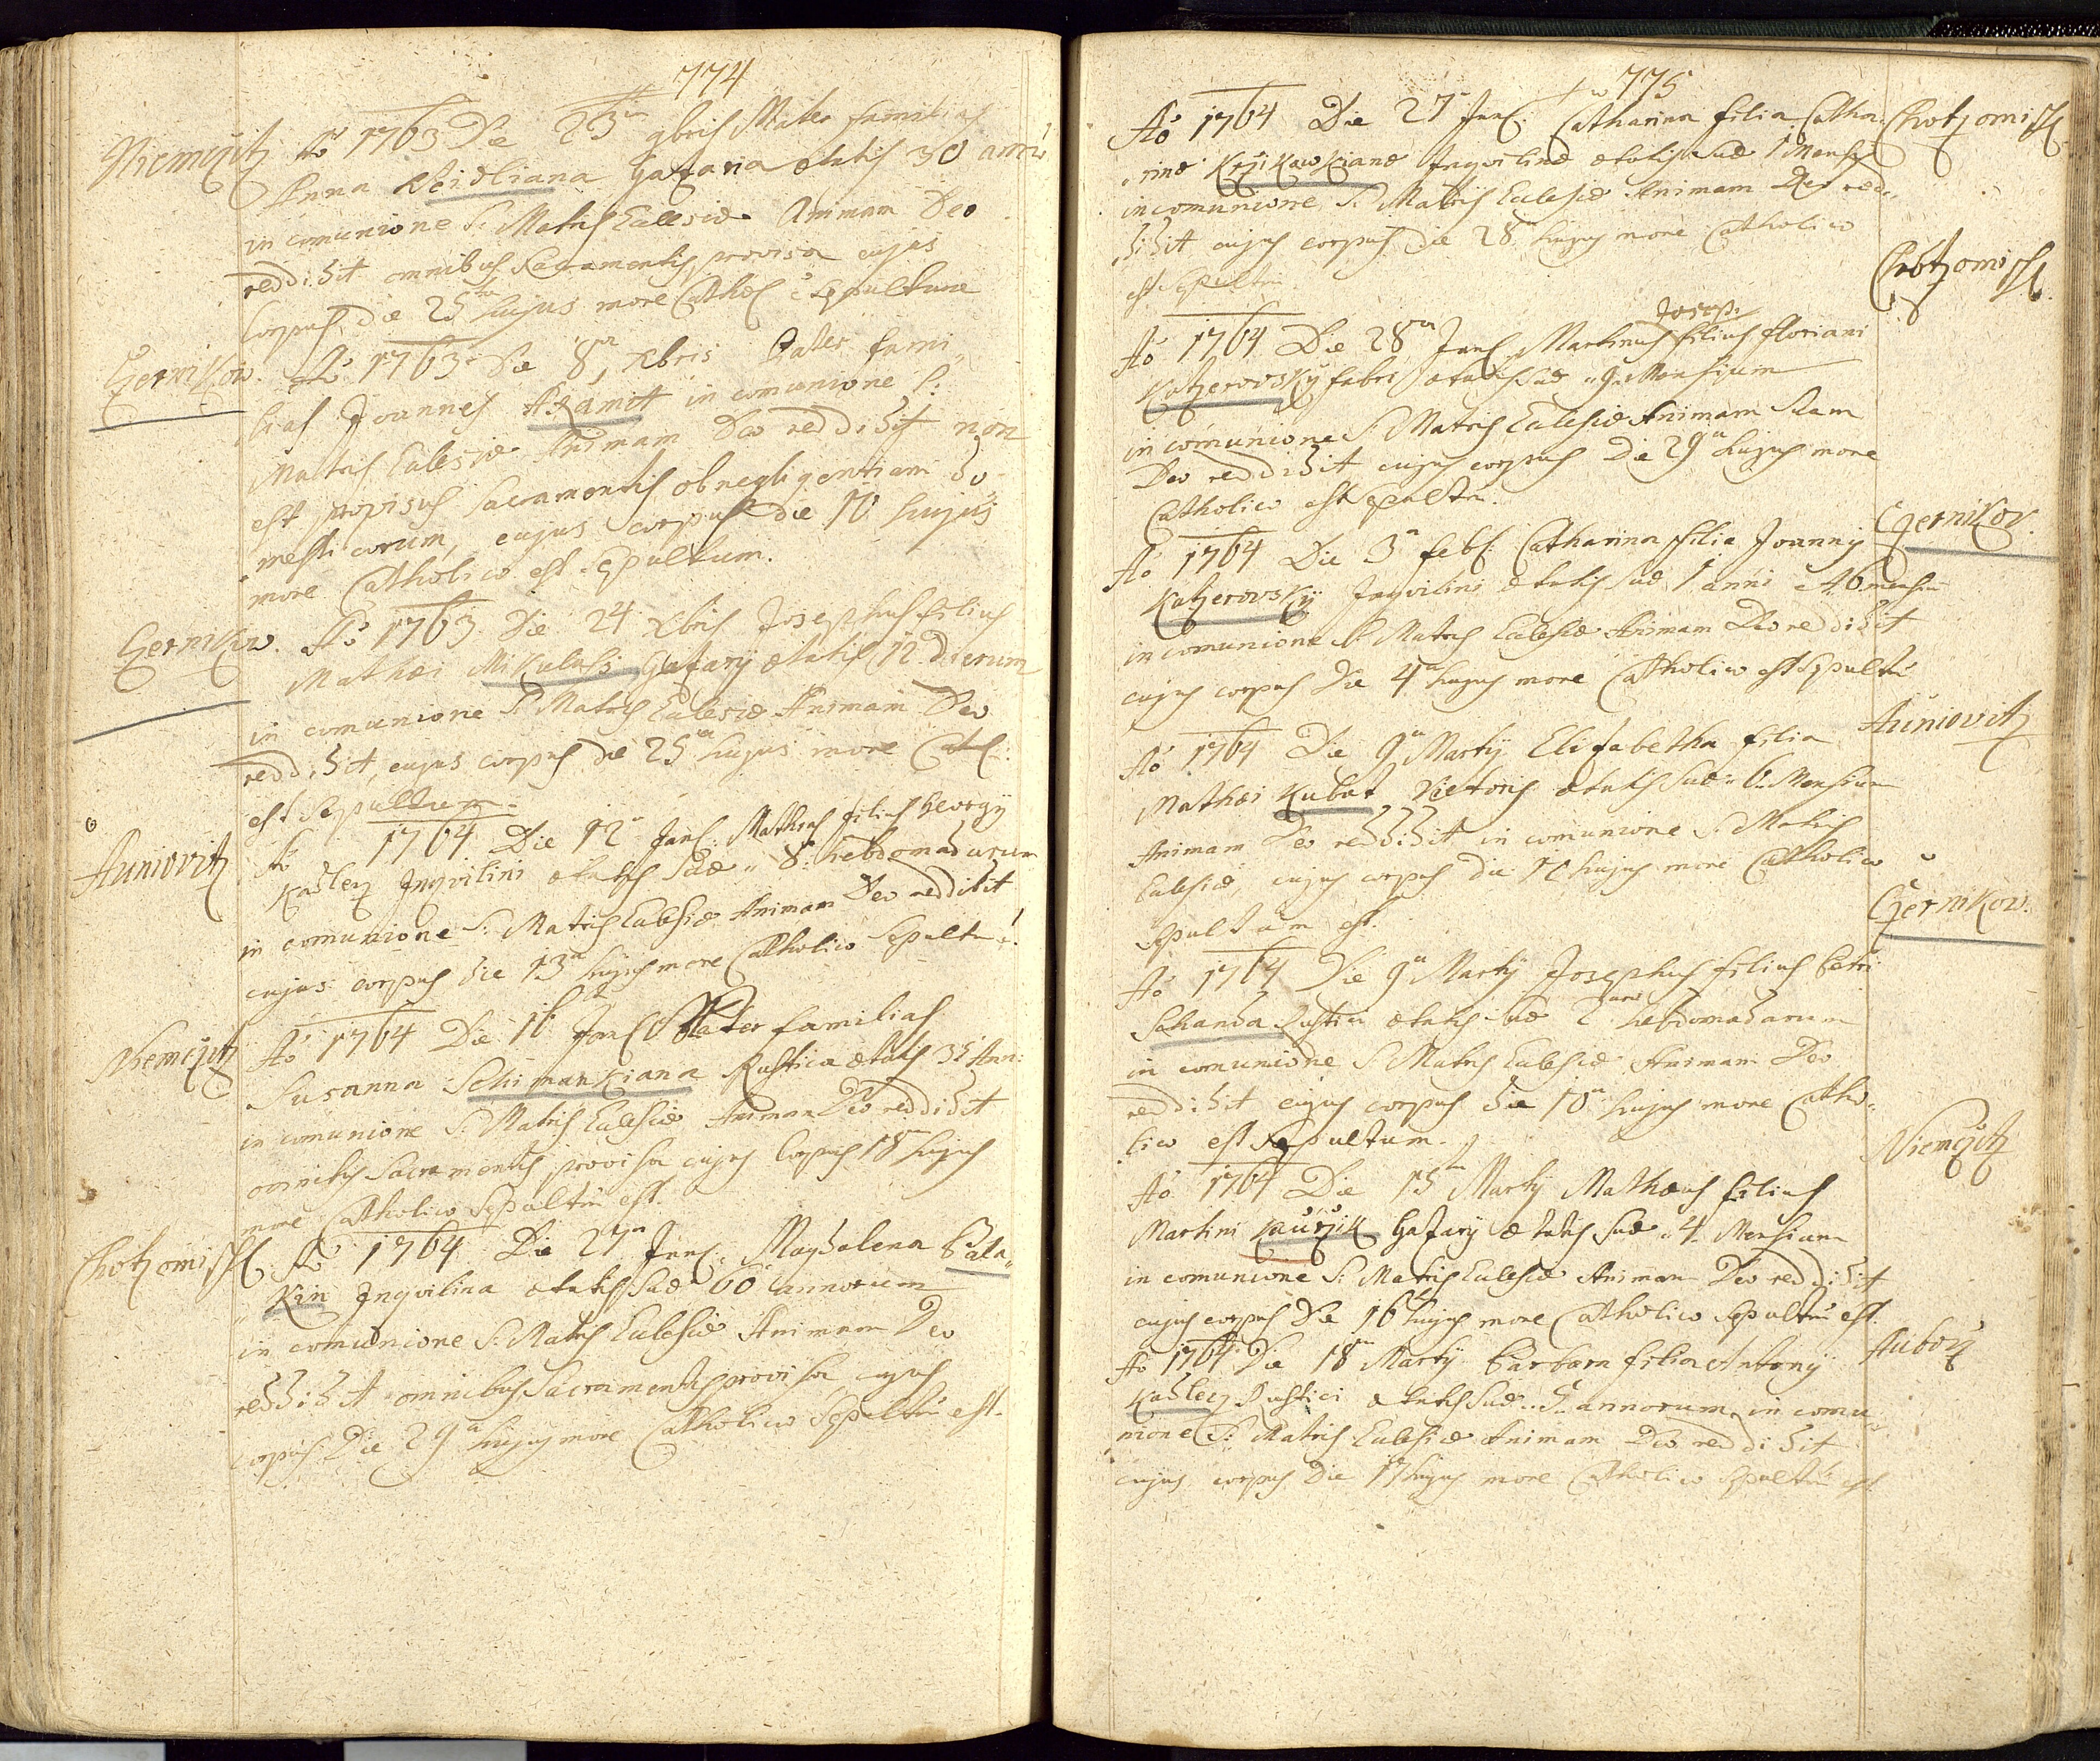 774
Niemcžitz
Ao 1763 Die 23a 9bris Mater familias
Anna Reidliana Gazaria ætatis 30 annor
in comunione S: Matris Eclesiæ Animam Deo
reddidit omnibus Sacramentis provisa cujus
Corpus die 25ta hujus more Cathol: e Sepultum
Czernikow.
Ao 1763 Die 8va Xbris Pater fami
lias Joannes Adamott in comunione S:
Matris Eclesiæ Animam Deo reddidit non
est provisus Sacramentis ob negligentiam do
mesticorum, cujus corpus die 10 hujus
more Catholico est Sepultum.
Czernikow.
Ao 1763 Die 24 Xbris Josephus filius
Mathæi Mikulass Gazary ætatis 12 dierum
in comunione S: Matris Eclesiæ Animam Deo
reddidit, cujus corpus die 25ta hujus more Cath:
est Sepultum.
Auniovitz
Ao 1764 Die 12a Jan: Mathias filius Georgÿ
Kadlecz Inqvilini ætatis suæ 8: hebdomadarum
in comunione S: Matris Eclesiæ Animam Deo reddidit
cujus corpus die 13a hujus more Catholico Sepultu e:
Niemcžitz
Ao 1764 Die 16 Jan: Mater familias
Susanna Schimankiana Rustica ætatis 35 Ann:
in comunione S: Matris Eclesiæ Animam Deo reddidit
omnibus Sacramentis provisa cujus Corpus 18a hujus
more Catholico Sepultu est.
Chotzomisschl
Ao 1764 Die 27a Jan: Magdalena Bala
kin Inqvilina ætatis suæ 60 annorum
in comunione S: Matris Eclesiæ Animam Deo
reddidit omnibus Sacramentis provisa cujus
corpus Die 29a hujus more Catholico Sepultu est.
775
Ao 1764 Die 27 Jan: Catharina filia Catha
Chotzomisschl
rinæ Krzikawkianæ Inqvilinæ ætatis suæ 1 Mensis
in comunione S: Matris Eclesiæ Animam Deo red
didit cujus corpus die 28 hujus more Catholico
est Sepultu
Chotzomisschl.
Joseph:
Ao 1764 Die 28va Jan: Martinus filius Floriani
Katzerovskÿ fabri ætatis suæ 9 Mensium
in comunione S: Matris Eclesiæ Animam suam
Deo reddidit cujus corpus Die 29a hujus more
Catholico est Sepultu.
Czernikov.
Ao 1764 Die 3a feb: Catharina filia Joannÿ
Katzerovskÿ Inqvilini ætatis suæ 1 anni et 6 mensiu
in comunione S: Matris Eclesiæ Animam Deo reddidit
cujus corpus Die 4a hujus more Catholico est Sepultu
Auniovitz
Ao 1764 Die 9a Martÿ Elisabetha filia
Mathæi Kubat Vietoris ætatis suæ 6 Mensium
Animam Deo reddidit in comunione S: Matris
Eclesiæ, cujus corpus die 10 hujus more Catholico
Sepultum est.
Czernikow.
Ao 1764 Die 9a Martÿ Josephus filius Petri
Sahanda Rustici ætatis suæ 2 hebdomadarum
in comunione S: Matris Eclesiæ Animam Deo
reddidit cujus corpus die 10a hujus more Catho
lico est Sepultum.
Niemcžitz
Ao 1764 Die 15ta Martÿ Mathæus filius
Martini Kaurzik Gazarÿ ætatis suæ 4 Mensium
in comunione S: Matris Eclesiæ Animam Deo reddidit
cujus corpus Die 16 hujus more Catholico Sepultu est.
Auborz
Ao 1764 Die 18va Martÿ Barbara filia Antonÿ
Kadlecz Rustici ætatis suæ 5 annorum in comu
nione S: Matris Eclesiæ Animam Deo reddidit
cujus corpus Die 19 hujus more Catholico Sepultu est